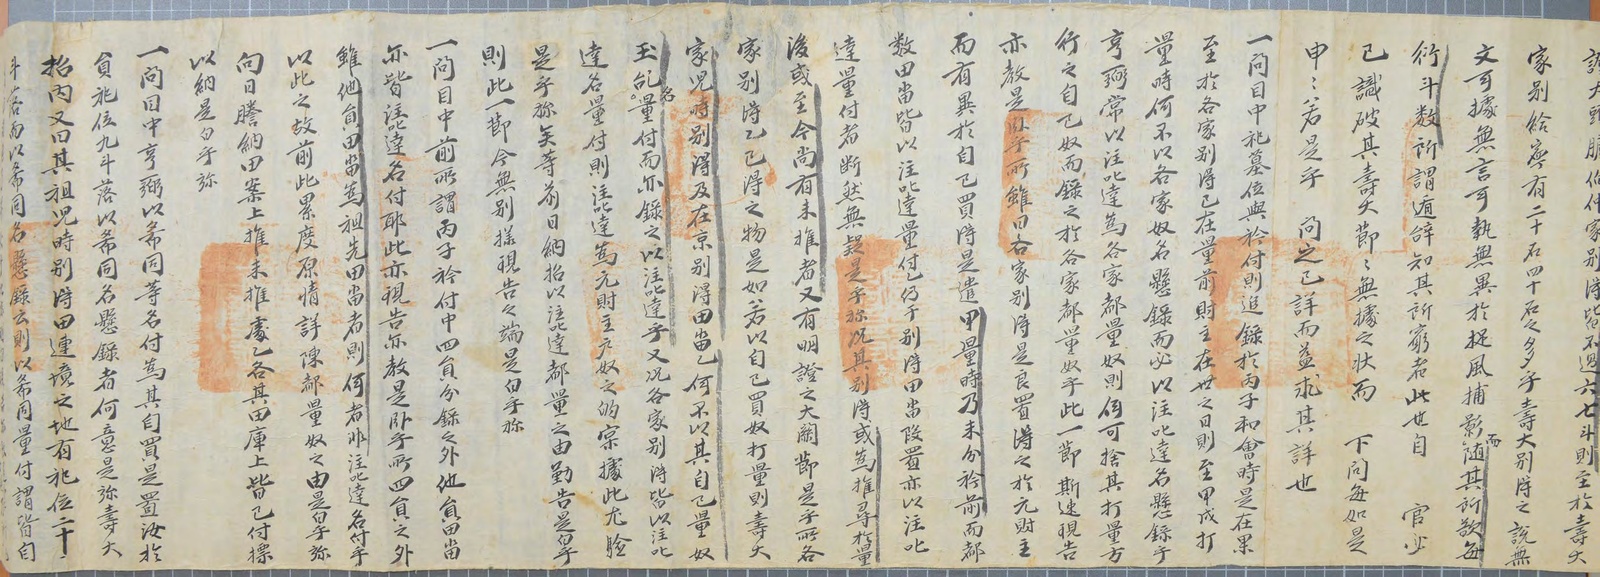 家別給裔有二十石四十石之多乎壽大別得之說無
文可據無言可執無異於捉風捕影而隨其所欲每
衍斗數所謂遁辭知其所窮者此也自 官少
已識破其壽大節〻無據之狀而 下問每如是
申〻若是乎 問之已詳而益求其詳也
一問目中祀墓位與衿付則進錄於丙子和會時是在果
至於各家別得已在量前財主在世之日則至甲戌打
量時何不以各家奴名懸錄而必以注叱達名懸錄乎
亨弼常以注叱達爲各家都量奴則何可捨其打量方
行之自己奴而錄之於各家都量奴乎此一節斯速現告
亦敎是臥乎所雖曰各家別得是良置得之於元財主
而有異於自己買得是遣甲量時乃未分衿前而都
数田畓皆以注叱達量付已仍于別得田畓段置亦以注叱
達量付者斷然無疑是乎旀况其別得或爲推尋於量
後或至今尚有未推者又有明證之大關節是乎所各
家別得乙已得之物是如若以自己買奴打量則壽大
家児時別得及在京別得田畓乙何不以其自己量奴
玉乭名量付而亦錄之以注叱達乎又况各家別得皆以注叱
達名量付則注叱達爲元財主戶奴之的宗據此尤驗
是乎旀矣等前日納招以注叱達都量之由勤告是白乎
則此一節今無別樣現告之端是白乎旀
一問目中前所謂丙子衿付中四員分錄之外他員田畓
亦皆注叱達名付耶此亦現告亦敎是臥乎所四員之外
雖他員田畓爲祖先田畓者則何者非注叱達名付乎
以此之故前此累度原情詳陳都量奴之由是白乎旀
向日謄納田案上推未推處乙各其田庫上皆已付標
以納是白乎旀
一問目中亨弼以希同等名付爲其自買是置汝於
員祀位九斗落以希同名懸錄者何意是旀壽大
招內又曰其祖児時別得田連境之地有祀位二十
斗落而以希同名懸錄云則以希同量付謂皆自